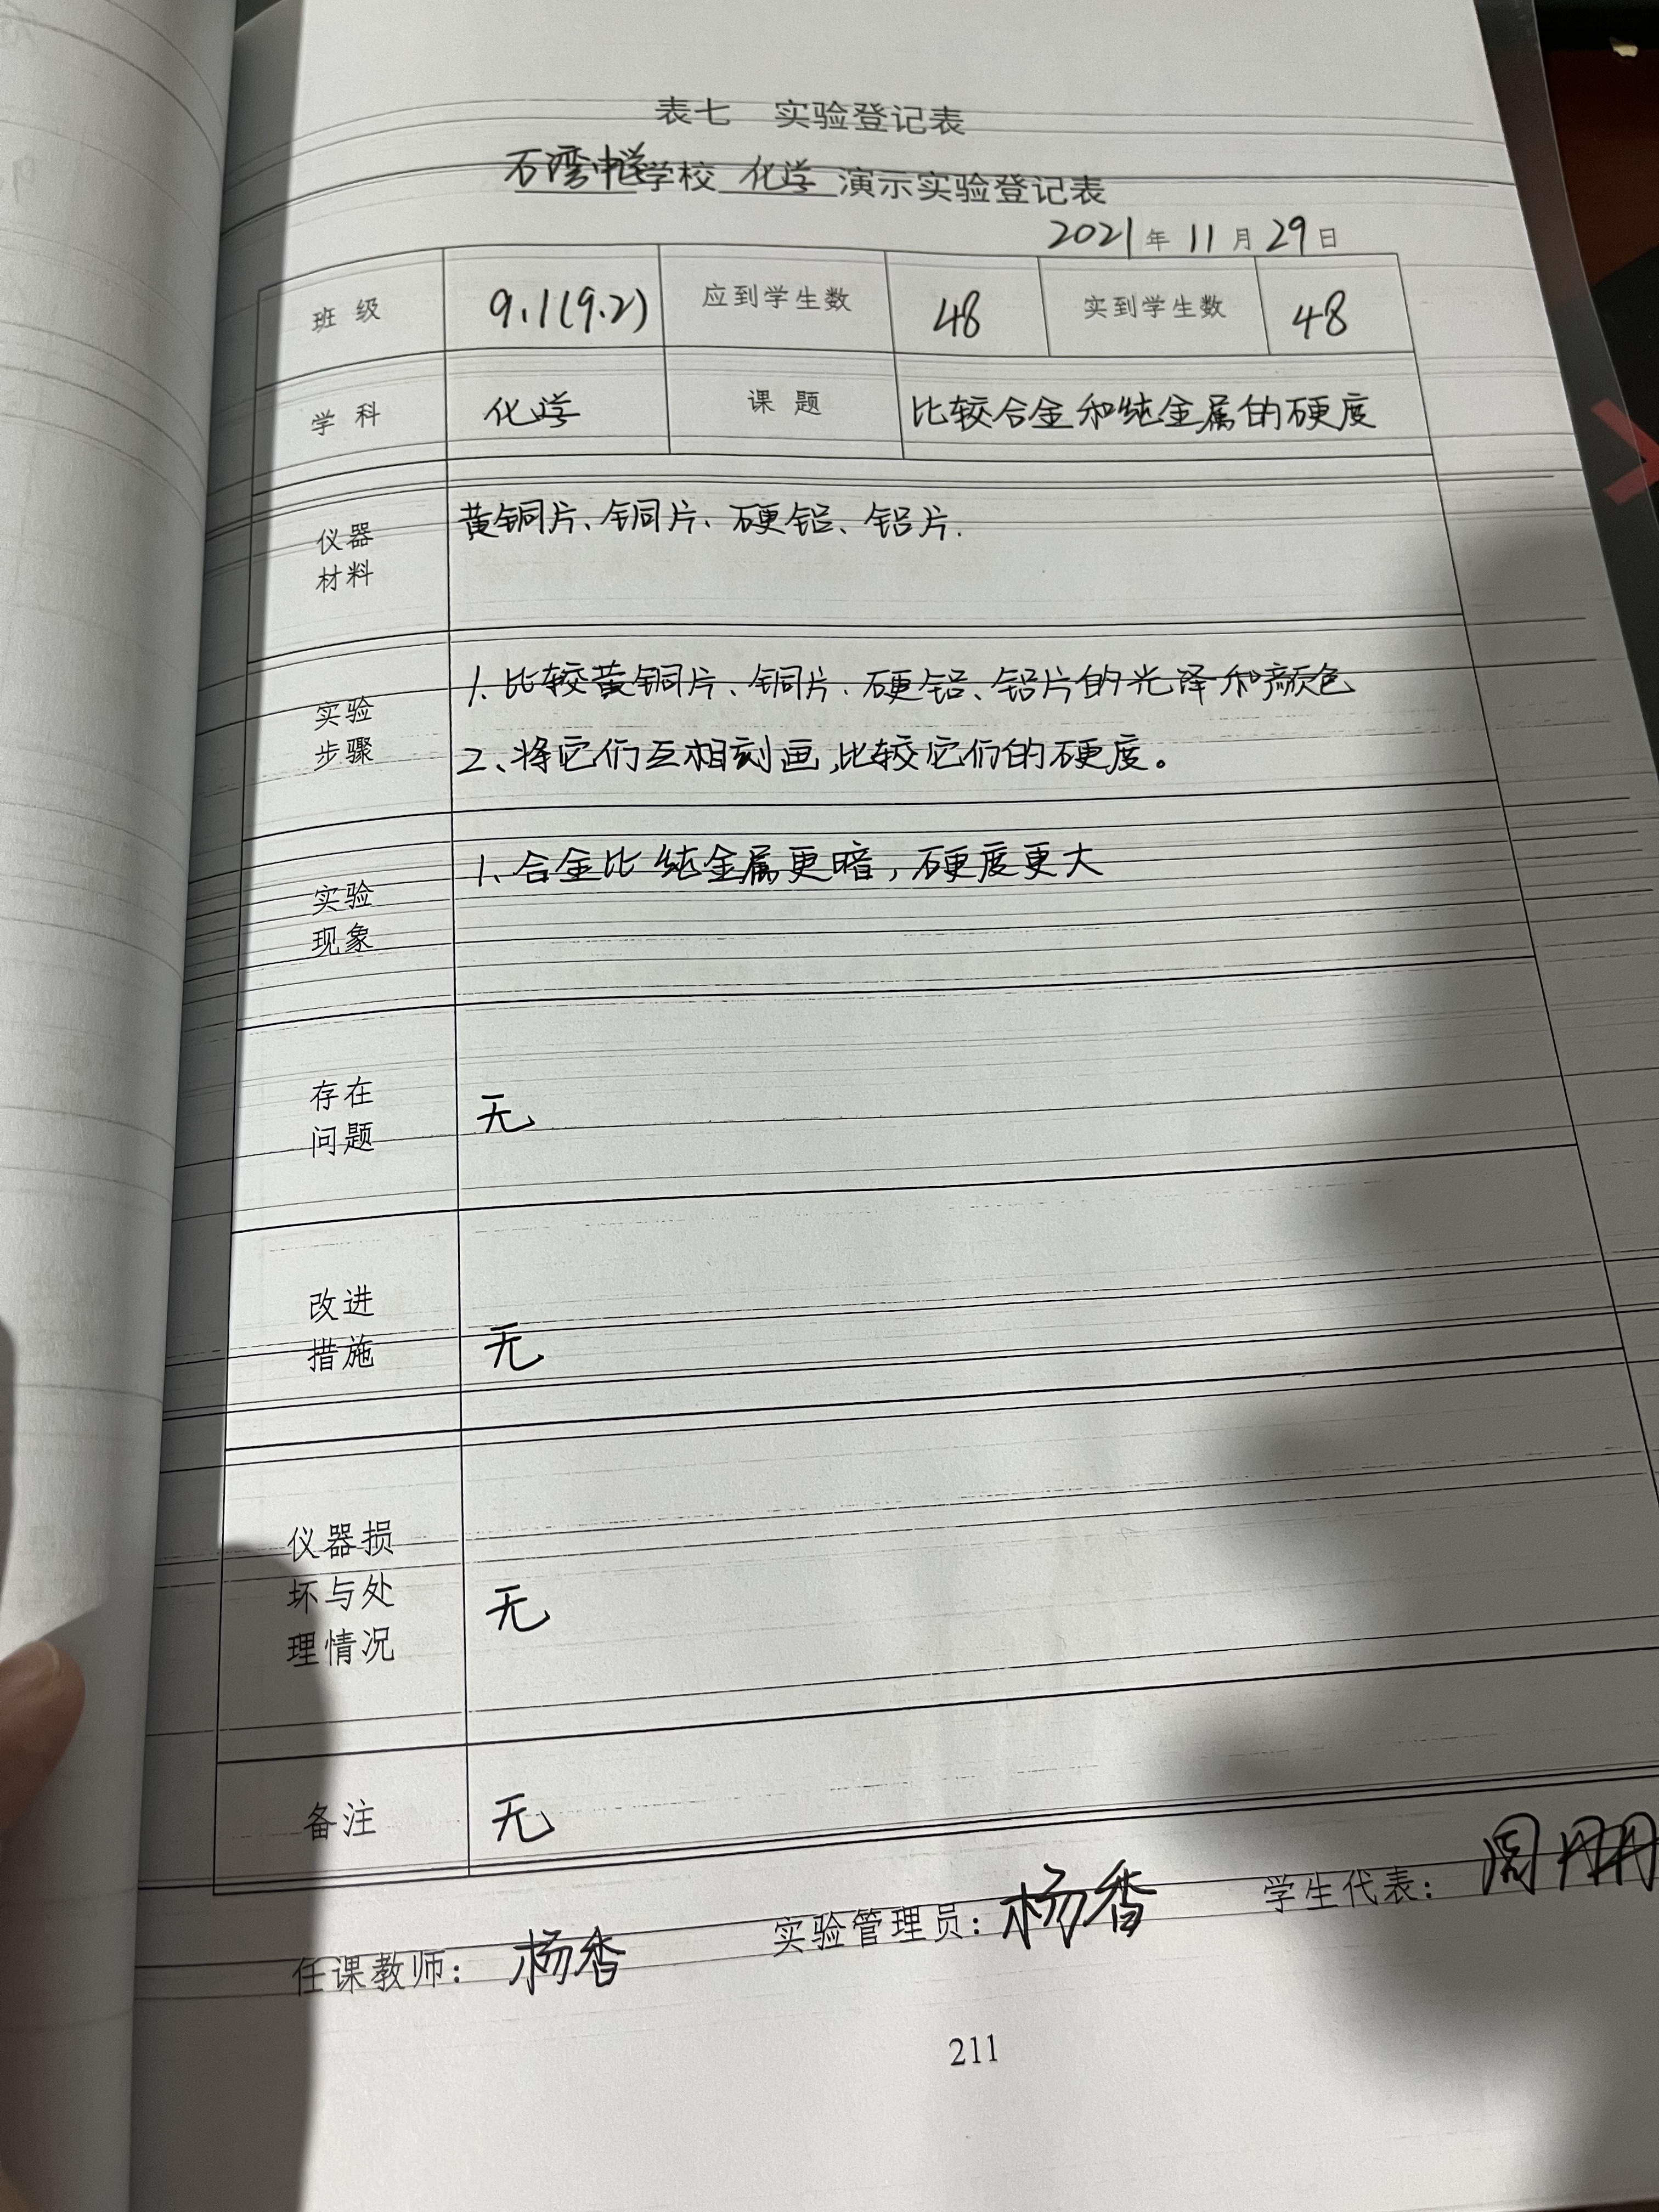 表七 实验登记表
石湾中学学校 化学 演示实验登记表
2021年11月29日
班级 9.1(9.2) 应到学生数 48 实到学生数 48
学科 化学 课题 比较合金和纯金属的硬度
仪器
材料
黄铜片、铜片、硬铝、铝片.
实验
步骤
1、比较黄铜片、铜片、硬铝、铝片的光泽和颜色
2、将它们互相刻画,比较它们的硬度。
实验
现象
1、合金比纯金属更暗,硬度更大
存在
问题
无
改进
措施
无
仪器损
坏与处
理情况
无
备注 无
任课教师: 杨香 实验管理员: 杨香 学生代表: 周
211